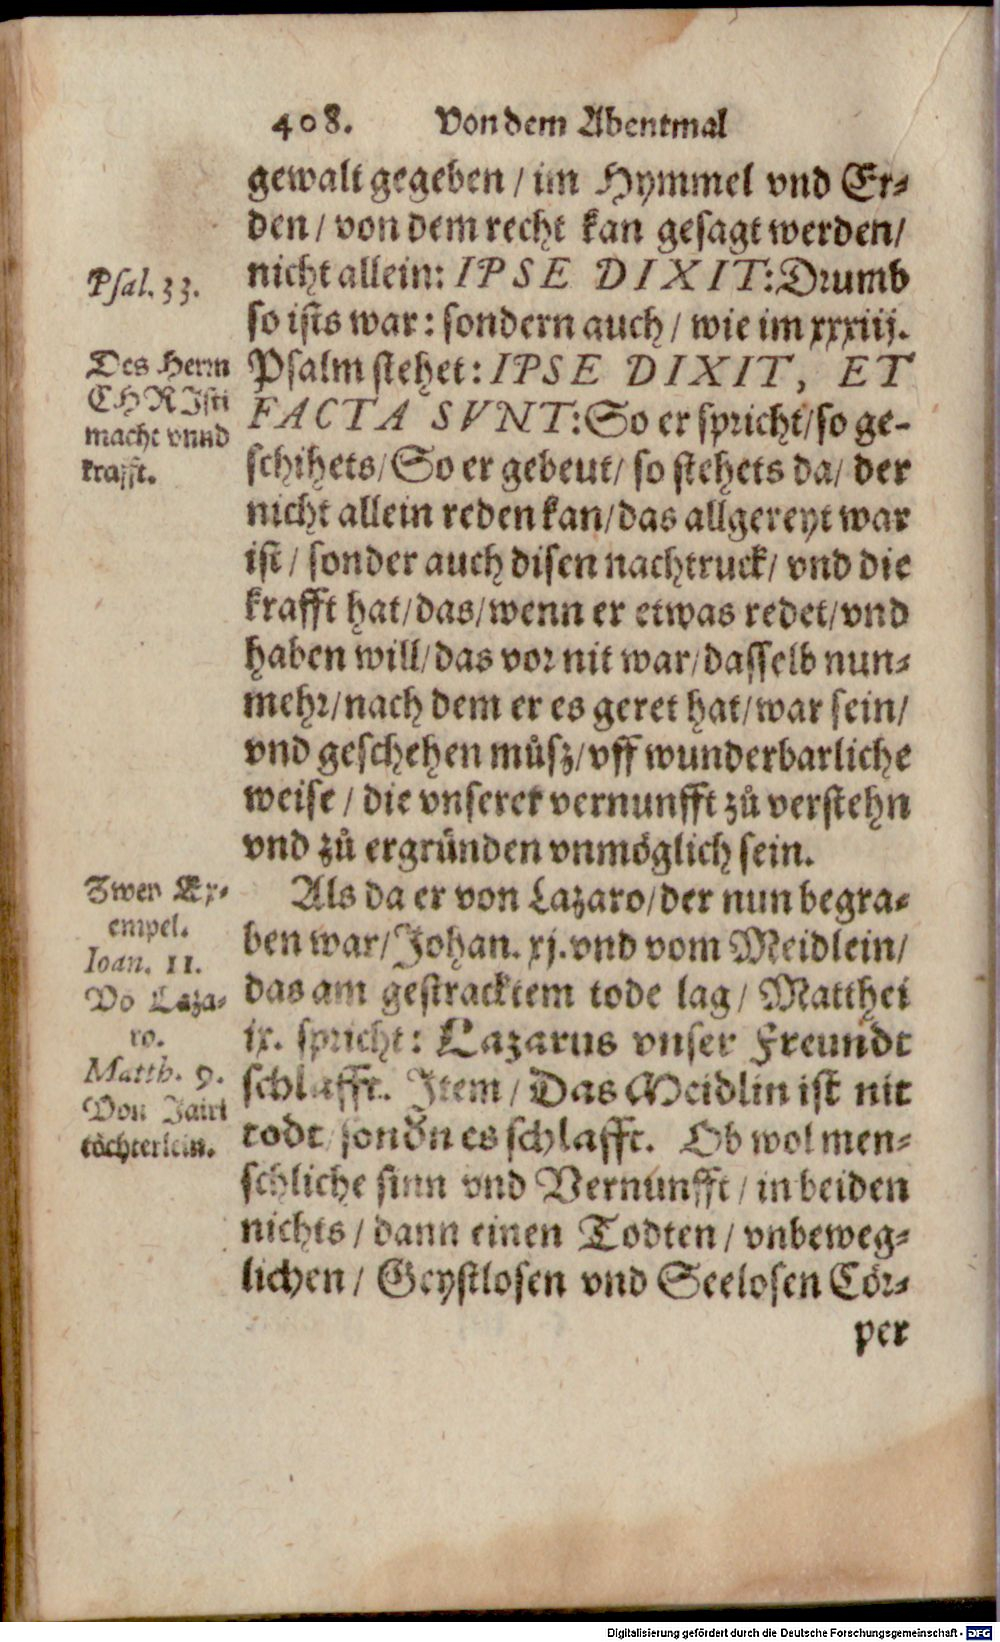 408. Von dem Abentmal
gewalt gegeben / im Hymmel vnd Er⸗
den / von dem recht kan gesagt werden/
nicht allein: IPSE DIXIT: Drumb
so ists war: sondern auch / wie im xxxiij.
Psalm stehet: IPSE DIXIT, ET
FACTA SVNT: So er spricht/so ge-
schihets/So er gebeut/ so stehets da/ der
nicht allein reden kan/das allgereyt war
ist / sonder auch disen nachtruck/ vnd die
krafft hat/das/wenn er etwas redet/vnd
haben will/das vor nit war/dasselb nun⸗
mehr/nach dem er es geret hat/war sein/
vnd geschehen můsz/vff wunderbarliche
weise / die vnserer vernunfft zů verstehn
vnd zů ergründen vnmöglich sein.
Als da er von Lazaro/der nun begra⸗
ben war/Johan. xj. vnd vom Meidlein/
das am gestracktem tode lag/ Matthei
ix. spricht: Lazarus vnser Freundt
schlafft. Item / Das Meidlin ist nit
todt/sonđn es schlafft. Ob wol men⸗
schliche sinn vnd Vernunfft / in beiden
nichts / dann einen Todten / vnbeweg⸗
lichen / Geystlosen vnd Seelosen Cör⸗
per
Psal. 33.
Des Herrn
CHRIsti
macht vnnd
krafft.
Zwen Ex⸗
empel.
Ioan. 11.
Vō Laza⸗
ro.
Matth. 9.
Von Jairi
töchterlein.
Digitalisierung gefördert durch die Deutsche Forschungsgemeinschaft - DFG